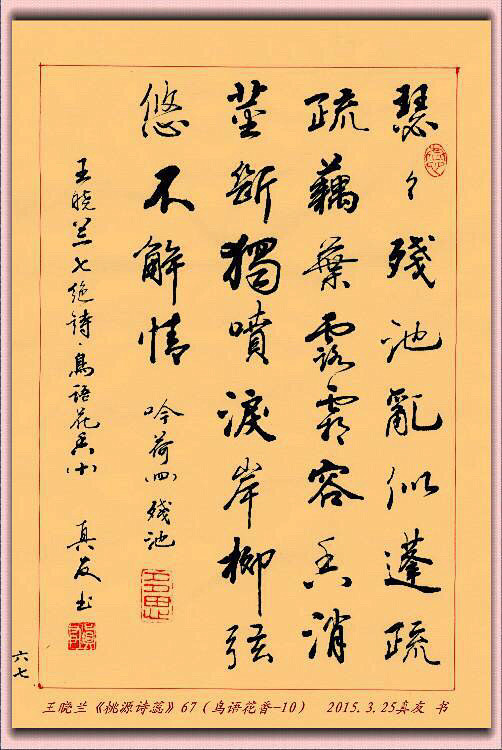 瑟々殘池亂似蓬疏
疏藕葉露霜容香消
莖斷獨噴淚岸柳弦
悠不解情 吟荷(四)殘池
王晓兰七绝诗·鳥语花香(十) 真友书
六七
王晓兰《桃源诗蕊》67(鸟语花香-10) 2015.3.25真友 书